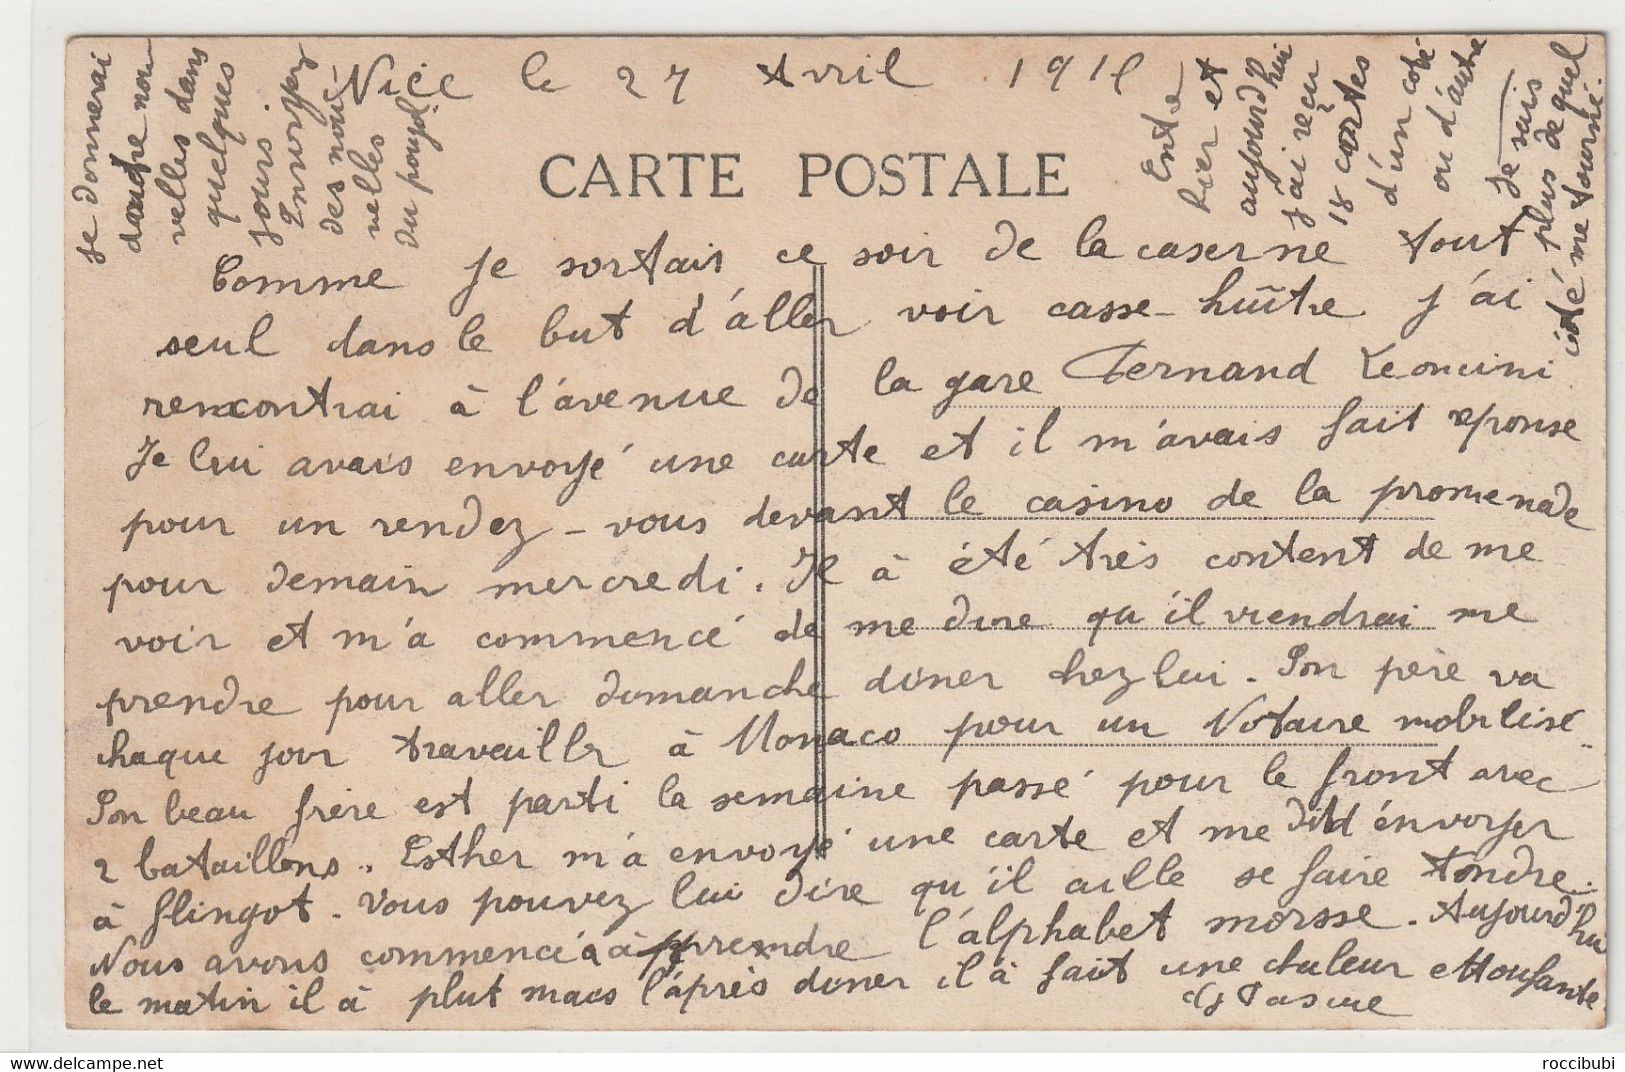 Nice le 27 Avril 191
CARTE POSTALE
Comme je sortais ce soir de la caserne tout
seul dans le but d'aller voir casse-huître j'ai
rencontrai à l'avenue de la gare Fernand Leonini
Je lui avais envoyé une carte et il m'avais fait réponse
pour un rendez-vous devant le casino de la promenade
pour demain mercredi. Il à été très content de me
voir et m'a commencé de me dire qu'il viendrai me
prendre pour aller dimanche diner chez lui. Son père va
chaque jour travailler à Monaco pour un Notaire mobilisé.
Son beau frère est parti la semaine passé pour le front avec
2 bataillons. Esther m'à envoyé une carte et me dit d'envoyer
à flingot. Vous pouvez lui dire qu'il aille se faire tondre.
Nous avons commencé à apprendre l'alphabet morsse. Aujourd'hui
le matin il à plut mais l'après diner il à fait une chaleur ettoufante.
je donnerai
dautre nou
velles dans
quelques
jours.
Envoyez
des nou-
velles
du
Entre
hier et
aujourd'hui
j'ai reçu
18 cartes
d'un coté
ou d'autre
je suis
plus de quel
côté me tourné.